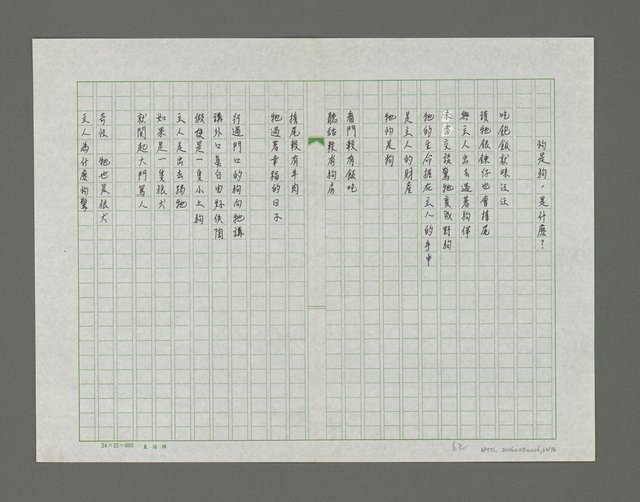 均是狗，是什麼？
吃飽飯就味汪汪
頭牠飯鍊仔也會搖尾
與主人出去遇著狗伴
未當交談驚牠變成野狗
牠的生命握在主人的手中
是主人的財產
牠均是狗
看門賴有飯吃
聽話賴有狗房
搖尾賴有牛肉
牠過著幸福的日子
行過門口的狗向牠講
講外口真自由好佚陶
假使是一隻小土狗
主人走出去踢牠
如果是一隻狼犬
就開起大門罵人
奇怪 牠也是狼犬
主人為什麼的驚
24×25=600
62